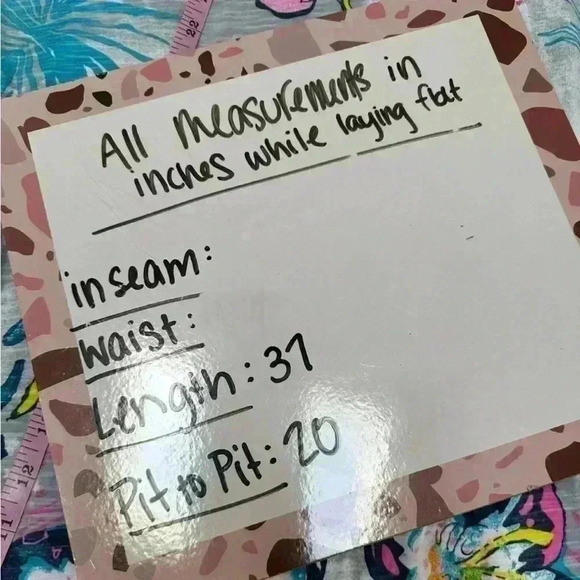 All measurements in
inches while laying flat
inseam:
Waist:
Length: 37
Pit to Pit: 20
22
12
11